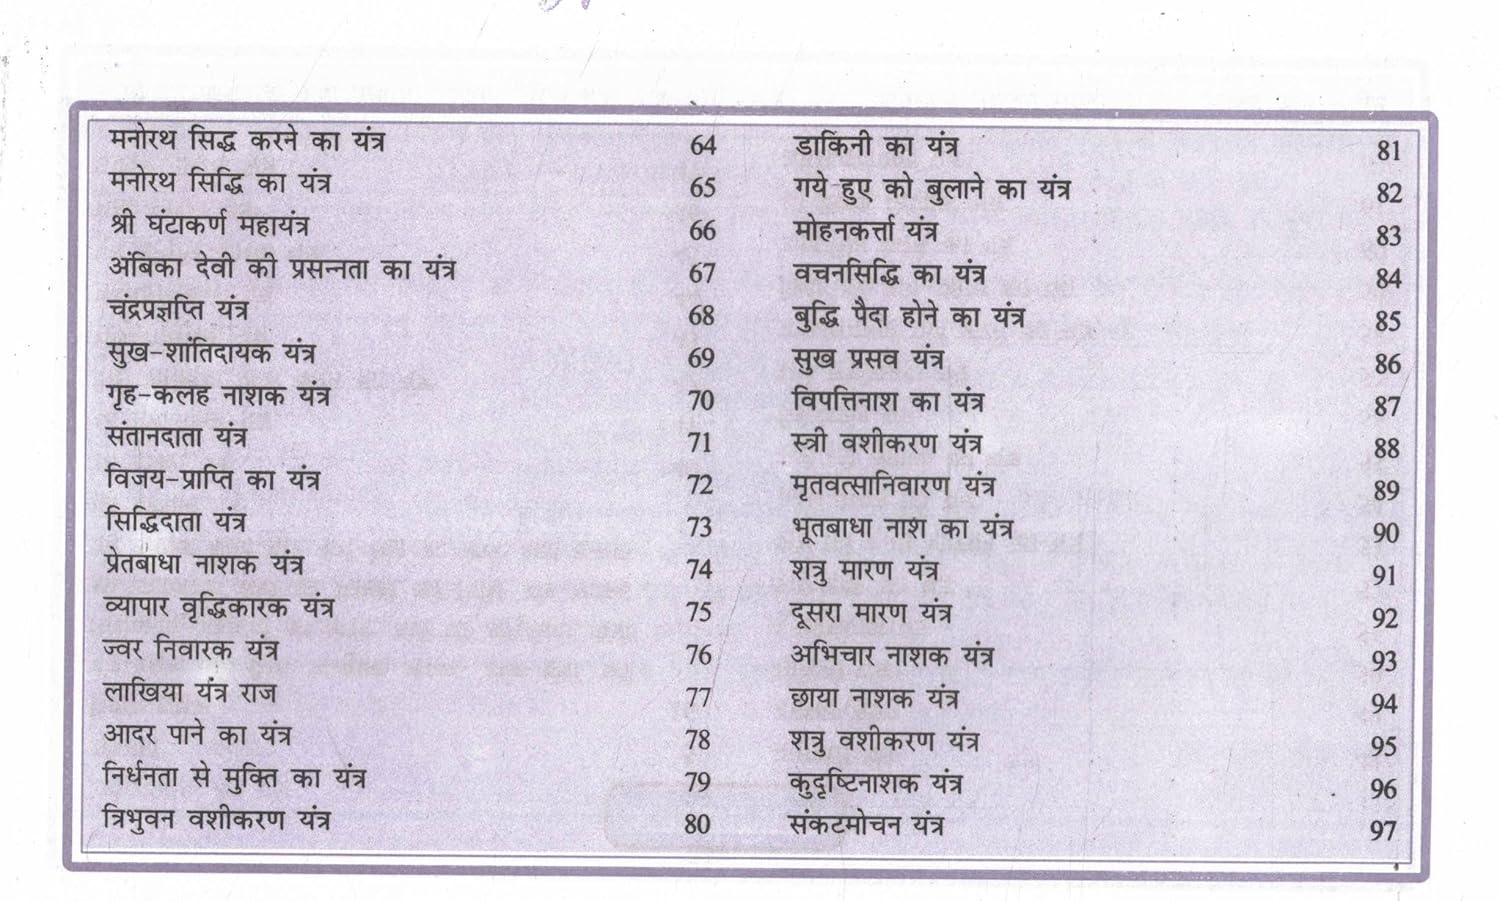 मनोरथ सिद्ध करने का यंत्र 64
मनोरथ सिद्धि का यंत्र 65
श्री घंटाकर्ण महायंत्र 66
अंबिका देवी की प्रसन्नता का यंत्र 67
चंद्रप्रज्ञप्ति यंत्र 68
सुख-शांतिदायक यंत्र 69
गृह-कलह नाशक यंत्र 70
संतानदाता यंत्र 71
विजय-प्राप्ति का यंत्र 72
सिद्धिदाता यंत्र 73
प्रेतबाधा नाशक यंत्र 74
व्यापार वृद्धिकारक यंत्र 75
ज्वर निवारक यंत्र 76
लाखिया यंत्र राज 77
आदर पाने का यंत्र 78
निर्धनता से मुक्ति का यंत्र 79
त्रिभुवन वशीकरण यंत्र 80
डाकिनी का यंत्र 81
गये हुए को बुलाने का यंत्र 82
मोहनकर्त्ता यंत्र 83
वचनसिद्धि का यंत्र 84
बुद्धि पैदा होने का यंत्र 85
सुख प्रसव यंत्र 86
विपत्तिनाश का यंत्र 87
स्त्री वशीकरण यंत्र 88
मृतवत्सानिवारण यंत्र 89
भूतबाधा नाश का यंत्र 90
शत्रु मारण यंत्र 91
दूसरा मारण यंत्र 92
अभिचार नाशक यंत्र 93
छाया नाशक यंत्र 94
शत्रु वशीकरण यंत्र 95
कुदृष्टिनाशक यंत्र 96
संकटमोचन यंत्र 97